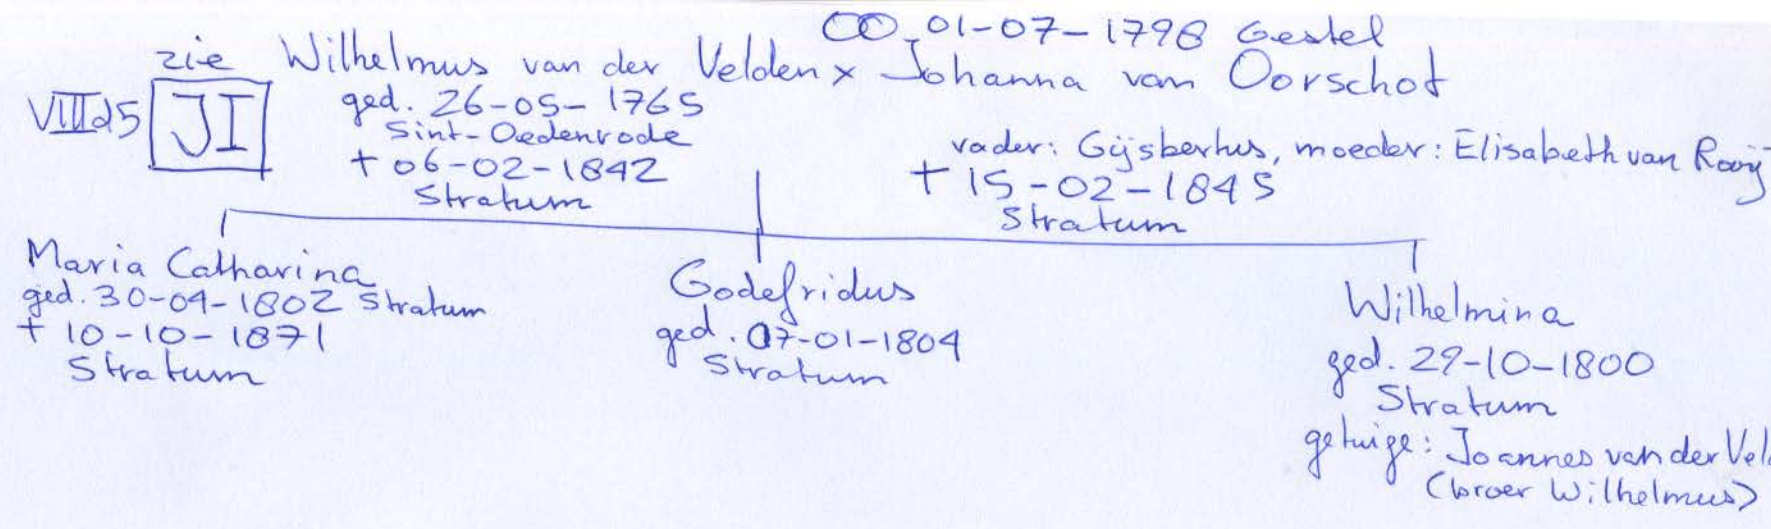 ∞ 01-07-1798 Gestel
zie Wilhelmus van der Velden x Johanna van Oorschot
VIIId5 JI
ged. 26-05-1765
Sint-Oedenrode
+ 06-02-1842
Stratum
vader: Gijsbertus, moeder: Elisabeth van Rooij
+ 15-02-1845
Stratum
Maria Catharina
ged. 30-04-1802 Stratum
+ 10-10-1871
Stratum
Godefridus
ged. 07-01-1804
Stratum
Wilhelmina
ged. 29-10-1800
Stratum
getuige: Joannes van der Vel
(broer Wilhelmus)